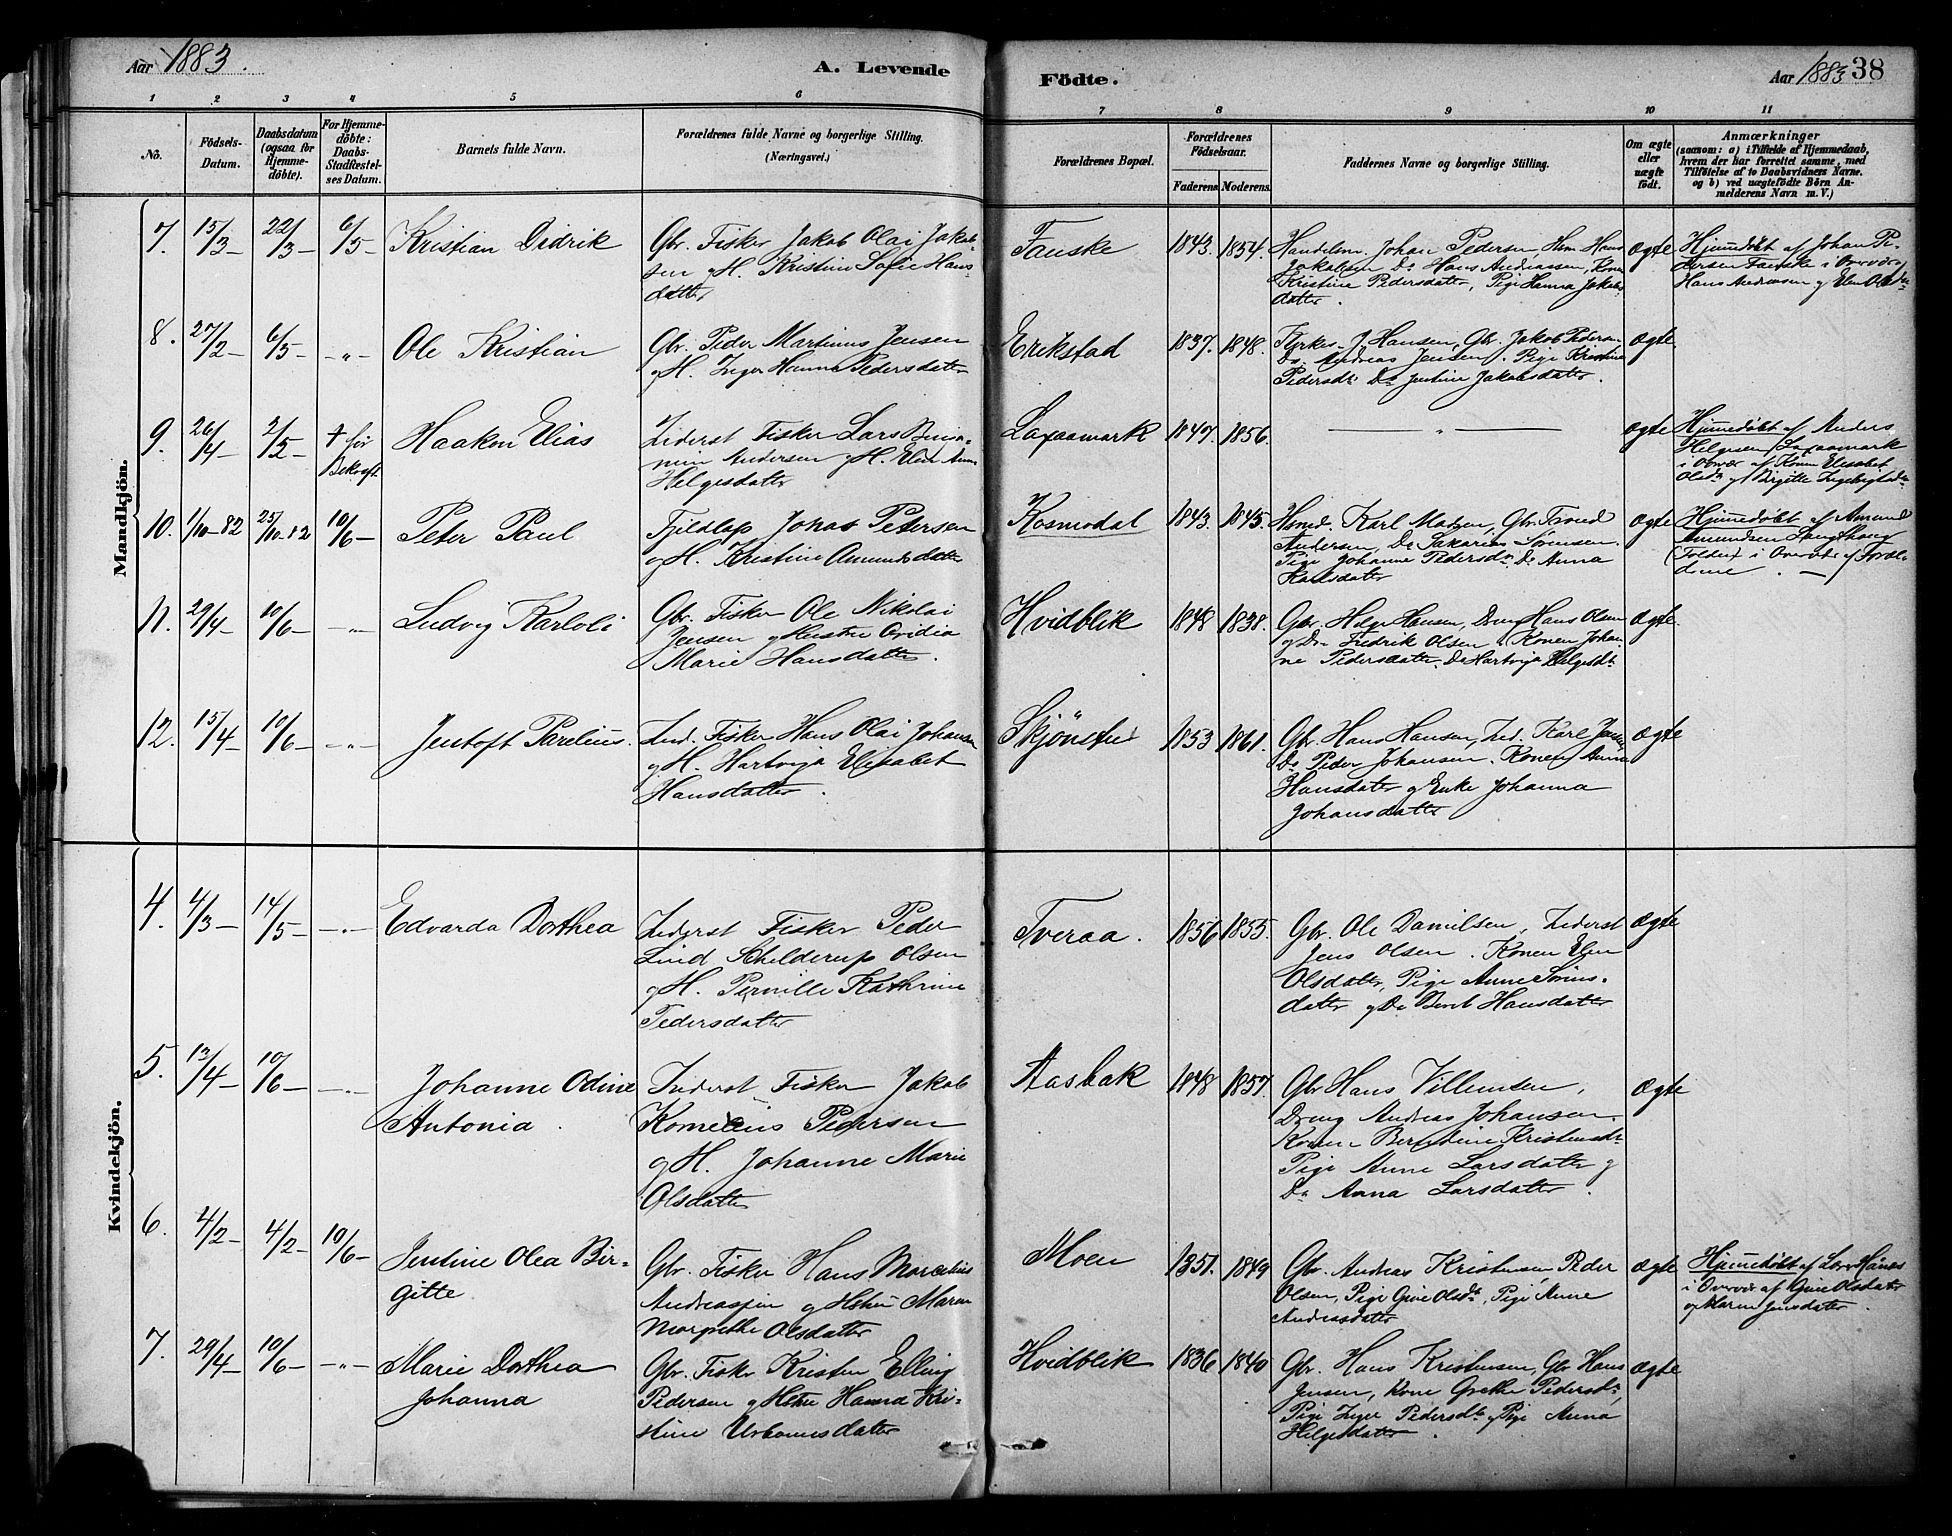 Aar 1883.
A. Levende
Födte.
Aar 1883
38
1 2 3 4 5 6 7 8 9 10 11
No.
Födsels-
Datum.
Daabsdatum
(ogsaa for
Hjemme-
döbte).
For Hjemme-
döbte:
Daabs-
Stadfæstel-
ses Datum.
Barnets fulde Navn.
Forældrenes fulde Navne og borgerlige Stilling.
(Næringsvei.)
Forældrenes Bopæl.
Forældrenes
Födselsaar.
Faderens Moderens.
Faddernes Navne og borgerlige Stilling.
Om ægte
eller
uægte
födt.
Anmærkninger
(saasom: a) i Tilfælde af Hjemmedaab,
hvem der har forrettet samme, med
Tilföielse af to Daabsvidners Navne.
og b) ved uægtefödte Börn An-
melderens Navn m. V.)
Mandkjön.
7. 15/3 – 22/3 – 6/5 – Kristian Didrik
Gbr. Fisker Jakob Olai Jakob-
sen og H. Kristine Sofie Hans-
datter
Fauske 1843. 1854.
Handelsm. Johan Pedersen, Hsm. Hans
Jakobsen Do Hans Andreassen, Konen
Kristine Pedersdatter, Pige Hanna Jakobs-
datter.
ægte
Hjemmedøbt af Johan Pe-
dersen Fauske i Overvær af
Hans Andreassen og Elen Olsdtr
8. 27/2 – 6/5 – –"– Ole Kristian
Gbr. Peder Martinus Jensen
og H. Inger Hanna Pedersdatter
Erikstad 1837. 1848.
Kirkes. J. Hansen, Gbr. Jakob Pedersen
Do Andreas Jensen. Pige Kristine
Pedersdtr Do Jentine Jakobsdatter.
ægte.
9. 26/4 2/5 – † før
Bekræft.
Haakon Elias
Inderst Fisker Lars Benja-
min Andersen og H. Elen Anna
Helgesdatter
Laxaamark 1847. 1856.
— " —
ægte
Hjemmedøbt af Anders
Helgesen Laxaamark
i Overvær af Konen Elisabet
Olsdtr og Birgitte Ingebrigtsdtr
10. 1/10–82 25/10–82 10/6 – Peter Paul
Fjeldlap Jonas Petersen
og H. Kristine Amundsdatter
Kosmodal 1843. 1845.
Hsmd. Karl Madsen, Gbr. Trond
Andersen, Do Sakarias Sørensen.
Pige Johanne Pedersdtr. Do Anna
Karlsdatter
ægte
Hjemmedøbt af Amund
Amundsen
(Folden) i Overvær af Foræl-
drene. —
11. 29/4 – 10/6 – –"– Ludvig Karloli
Gbr. Fisker Ole Nikolai
Jensen og Hustru Ovidia
Marie Hansdatter.
Hvidblik 1848 1838.
Gbr. Helge Hansen, Dreng Hans Olsen
og Do Fredrik Olsen. Konen Johan-
ne Pedersdatter. Do Hartvija Helgesdtr
ægte.
12. 15/4 – 10/6 – –"– Jentoft Parelius.
Ind. Fisker Hans Olai Johansen
og H. Hartvija Elisabet
Hansdatter.
Skjønstu 1853 1861.
Gbr. Hans Hansen, Ind. Karl Jensen
Do Peder Johansen. Konen Anna
Hansdatter og Enke Johanna
Johansdatter
ægte
Kvindekjön.
4. 4/3 – 14/5 – –"– Edvarda Dorthea
Inderst Fisker Peder
Lind Schilderup Olsen
og H. Pernille Kathrine
Pedersdatter
Tveraa. 1856 1855.
Gbr. Ole Danielsen, Inderst
Jens Olsen. Konen Elen
Olsdatter, Pige Anne Sørens-
datter og Do Berit Hansdatter
ægte
5. 13/4 – 10/6 – –"– Johanne Odine
Antonia.
Inderst Fisker Jakob
Kornelius Pedersen
og H. Johanne Marie
Olsdatter
Aasbak 1848 1857.
Gbr Hans Villumsen,
Dreng Andreas Johansen.
Konen Berntine Kristensdtr
Pige Anne Larsdatter og
Do Anna Larsdatter.
ægte
6. 4/2 – 4/2 – 10/6 – Jentine Olea Bir-
gitte
Gbr. Fisker Hans Marcelius
Andreassen og Hstru Maren
Margrethe Olsdatter
Moen 1851. 1849
Gbr. Andreas Kristensen, Peder
Olsen, Pige Gine Olsdtr, Pige Anne
Andreasdatter
ægte
Hjemmedøbt af Hans
i Overvær af Gine Olsdatter
og Maren Jensdatter.
7. 29/4 – 10/6 – –"– Marie Dorthea
Johanna
Gbr. Fisker Kristen Elling
Pedersen og Hstru Hanna Kri-
stine Urbanusdatter
Hvidblik 1836 1840
Gbr. Hans Kristensen, Gbr Hans
Jensen, Kone Grethe Pedersdtr,
Pige Inger Pedersdtr og Pige Anna
Helgesdatter.
ægte